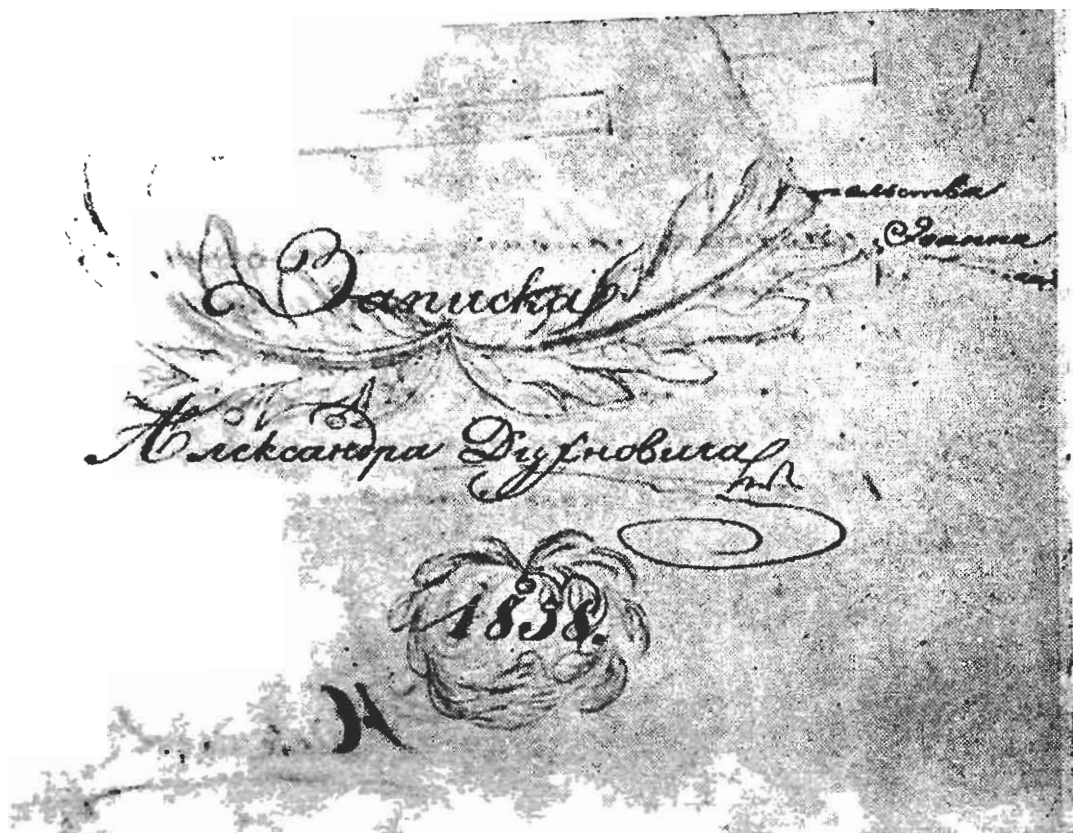 Иоанна
Записка
Александра Духновича
1838.